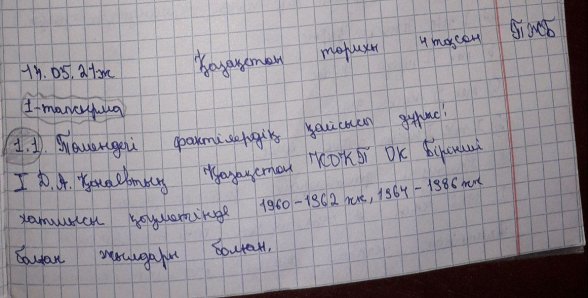 14.05.21ж Қазақстан тарихы 4 тоқсан ТЖБ
1-тапсырма
1.1. Төмендегі фактілердің қайсысы дұрыс?
I Д.А. Қонаевтың Қазақстан КОКП ОК Бірінші
хатшысы қызметінде 1960-1962 жж, 1964-1986 жж
болған жылдары болған.